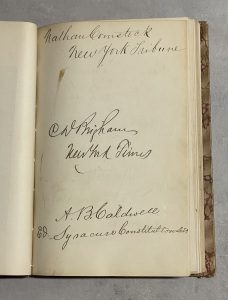 Nathan Comstock
New York Tribune
C W Brigham
New York Times
A. B. Caldwell
Ed. Syracuse Constitution